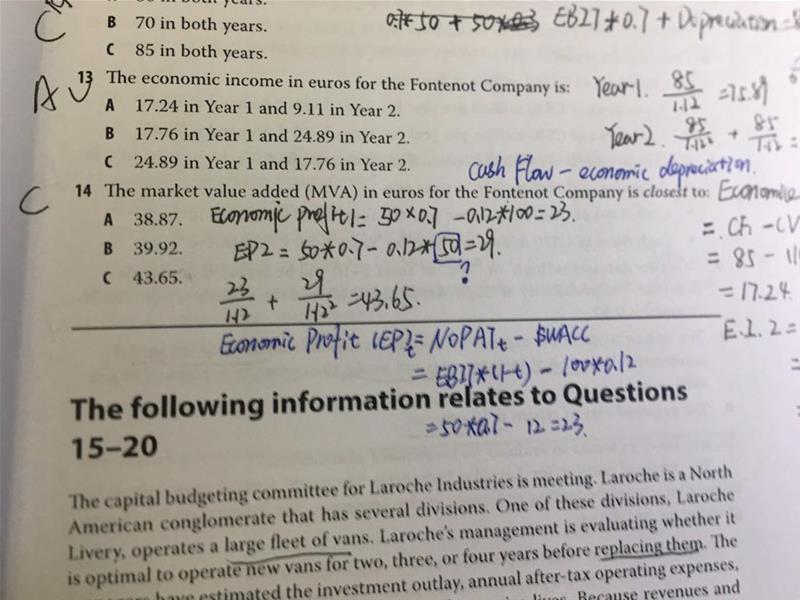 C
B 70 in both years.
0.7*50 + 50*0.3 EBIT*0.7 + Depreciation =
C 85 in both years.
A 13 The economic income in euros for the Fontenot Company is:
Year1. 85/1.12 = 75.89
A 17.24 in Year 1 and 9.11 in Year 2.
B 17.76 in Year 1 and 24.89 in Year 2.
Year2. 85/1.12² + 85/1.12 =
C 24.89 in Year 1 and 17.76 in Year 2.
Cash Flow - economic depreciation.
C 14 The market value added (MVA) in euros for the Fontenot Company is closest to:
Economic
A 38.87. Economic profit1 = 50*0.7 - 0.12*100 = 23.
= CF -
B 39.92. EP2 = 50*0.7 - 0.12*50 = 29.
= 85 -
?
C 43.65.
23/1.12 + 29/1.12² = 43.65.
= 17.24.
Economic Profit (EP)t = NOPATt - $WACC
E.I.2 =
= EBIT*(1-t) - 100*0.12
The following information relates to Questions
= 50*0.7 - 12 = 23.
15–20
The capital budgeting committee for Laroche Industries is meeting. Laroche is a North
American conglomerate that has several divisions. One of these divisions, Laroche
Livery, operates a large fleet of vans. Laroche's management is evaluating whether it
is optimal to operate new vans for two, three, or four years before replacing them. The
have estimated the investment outlay, annual after-tax operating expenses,
Because revenues and